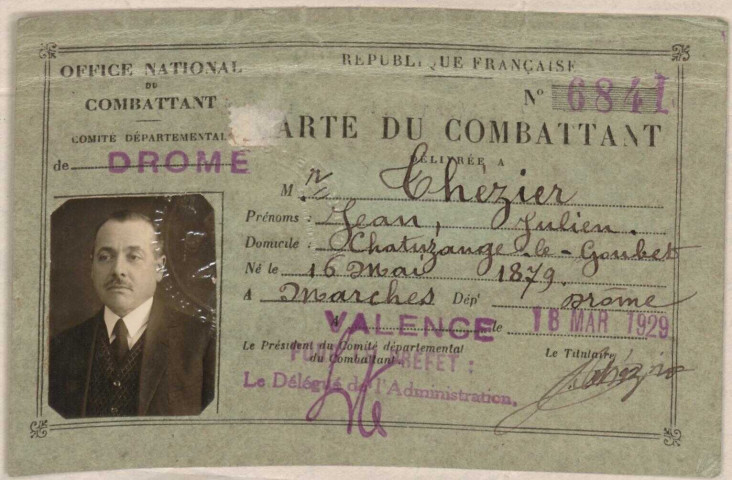 OFFICE NATIONAL
DU
COMBATTANT
COMITÉ DÉPARTEMENTAL
de DROME
RÉPUBLIQUE FRANÇAISE
N° 6841
CARTE DU COMBATTANT
DÉLIVRÉE A
M r Thézier
Prénoms : Jean, Julien.
Domicile : Chatuzange-le-Goubet
Né le 16 Mai 1879.
A Marches Dépt Drôme
A VALENCE le 18 MAR 1929
Le Président du Comité départemental
du Combattant
PREFET :
Le Délégué de l'Administration.
Le Titulaire